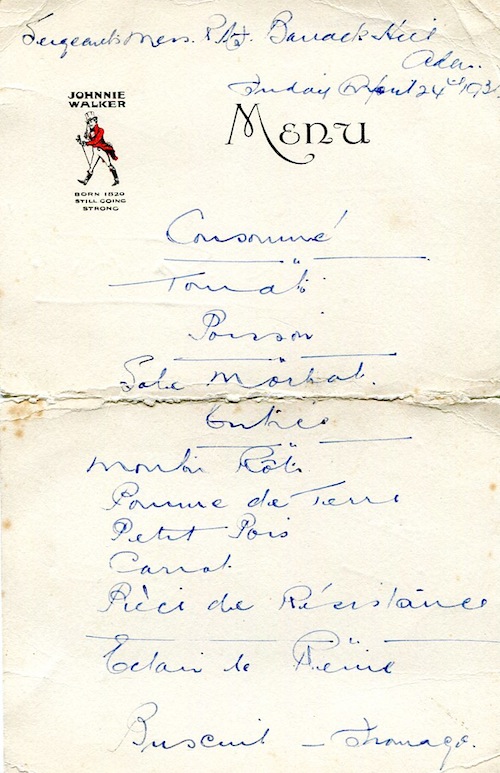 Sergeants Mess. R.A.F. Barrack Hill
Aden.
Friday April 24th 193
JOHNNIE
WALKER
BORN 1820
STILL GOING
STRONG
MENU
Consommé
Tomato
Poisson
Sole
Entrée
Rôti
Pomme de Terre
Petit Pois
Carrot
Pièce de Résistance
Eclair la Reine
Buscuit - Fromage.